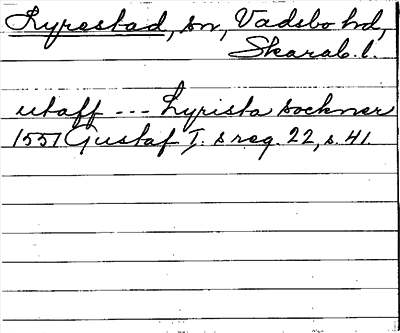 Lyrestad, sn, Vadsbo hd,
Skarab. l.
utaff --- Lyrista sockner
1551 Gustaf I. s reg. 22, s. 41.